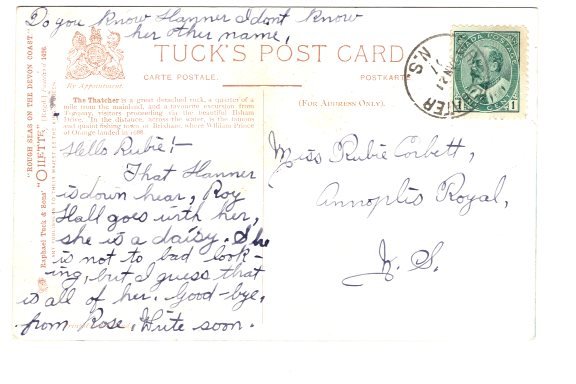 Do you know Hanner I dont know
her other name,
TUCK'S POST CARD
CARTE POSTALE.
POSTKARTE
By Appointment.
(FOR ADDRESS ONLY).
The Thatcher is a great detached rock, a quarter of a
mile from the mainland, and a favourite excursion from
Torquay, visitors proceeding via the beautiful Ilsham
Drive. In the distance, across the water, is the famous
and quaint fishing town of Brixham, where William Prince
of Orange landed in 1688.
Hello Rubie!—
That Hanner
is down hear, Roy
Hall goes with her,
she is a daisy. She
is not to bad look-
ing, but I guess that
is all of her. Good-bye,
from Rose. Write soon.
Miss Rubie Corbett,
Annoplis Royal,
N. S.
N.S.
1
Raphael Tuck & Sons' "OILETTE"
"ROUGH SEAS ON THE DEVON COAST."